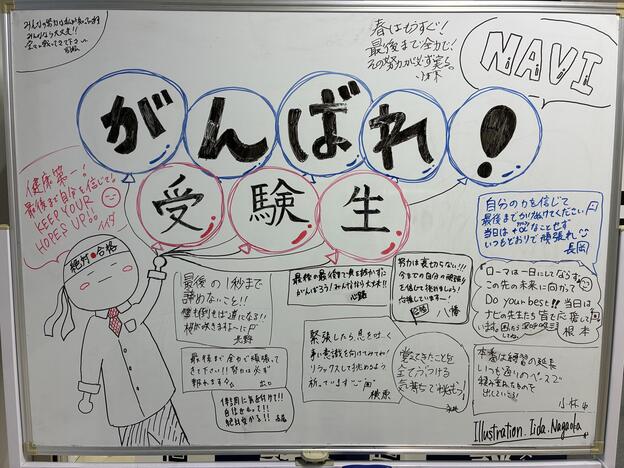 みんなの努力は私が知ってます
みんななら大丈夫!!
春はもうすぐ!
最後まで全力で!
その努力が必ず実る。
NAVI
がんばれ!
受験生
健康第一!
最後まで自分を信じて!
KEEP YOUR
HOPES UP!!
イイダ
絶対合格
自分の力を信じて
最後までかけぬけてください
当日は+αなことせず
いつもどおりで頑張れ
長岡
最後の1秒まで
諦めないこと!!
壁も倒せば道になる!!
桜が咲きますよーに
最後の最後まで気を抜かずに
がんばろう!みんななら大丈夫!
努力は裏切らない!!!
今までの自分の頑張り
を信じて挑めましょう!
応援しています!
八幡
ローマは一日にしてならず
この先の未来に向かって
Do your best!! 当日は
ナビの先生たち皆で応援して
います。
根本
最後まで全力で頑張って
きて下さい!!努力は必ず
報われます
体調に気を付けて!!
自信をもって!!
絶対受かる!!
緊張したら、息を吐く
事に意識を向けてみてね!
リラックスして挑めるよう
祈っています
横原
覚えてきたことを
全てぶつける
気持ちで挑もう!
本番は練習の延長
いつも通りのペースで
積み重ねたものを
出していこう!
小林
Illustration. Iida. Nagaoka